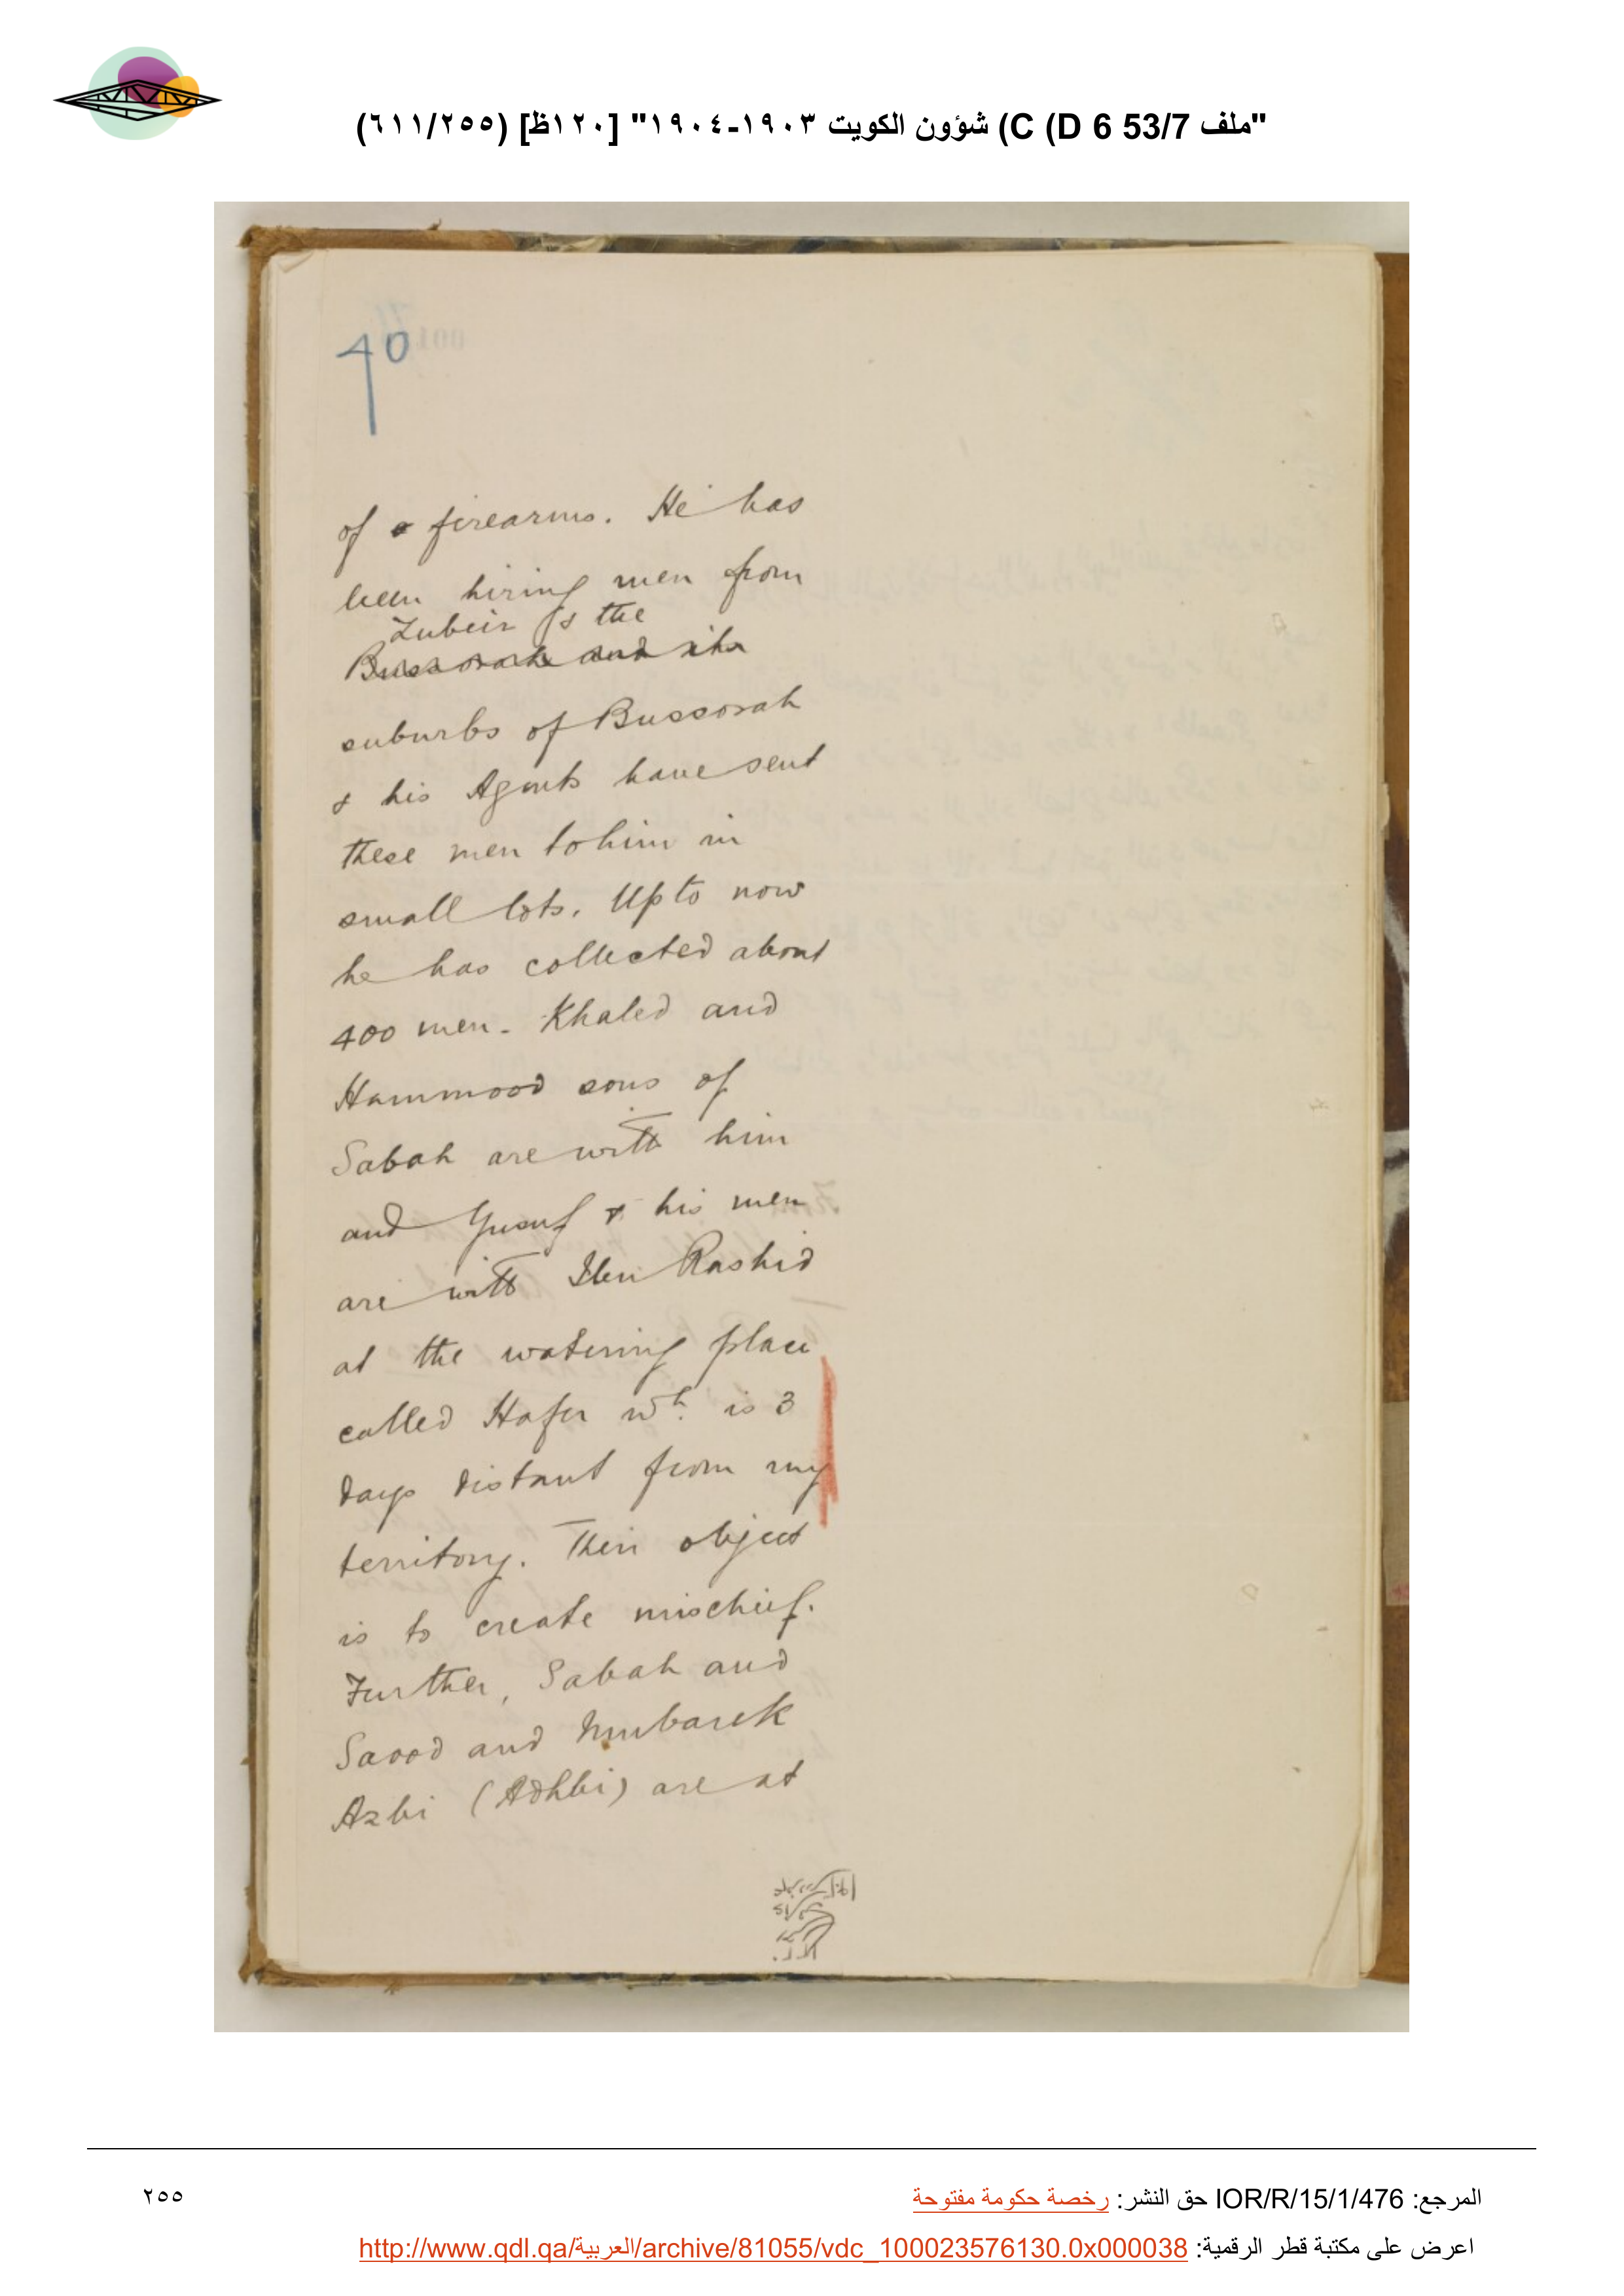 "ملف 53/7 C (D 6) شؤون الكويت ١٩٠٣-١٩٠٤" [١٢٠ظ] (٦١١/٢٥٥)
40
of firearms. He has
been hiring men from
Zubeir & the
Bussorah and its
suburbs of Bussorah
& his Agents have sent
these men to him in
small lots. Up to now
he has collected about
400 men. Khaled and
Hammood sons of
Sabah are with him
and Yusuf & his men
are with Ibn Rashid
at the watering place
called Hafer wh. is 3
days distant from my
territory. Their object
is to create mischief.
Further, Sabah and
Saood and Mubarek
Azbi (Adhbi) are at
المرجع: IOR/R/15/1/476 حق النشر: رخصة حكومة مفتوحة
٢٥٥
اعرض على مكتبة قطر الرقمية: http://www.qdl.qa/العربية/archive/81055/vdc_100023576130.0x000038